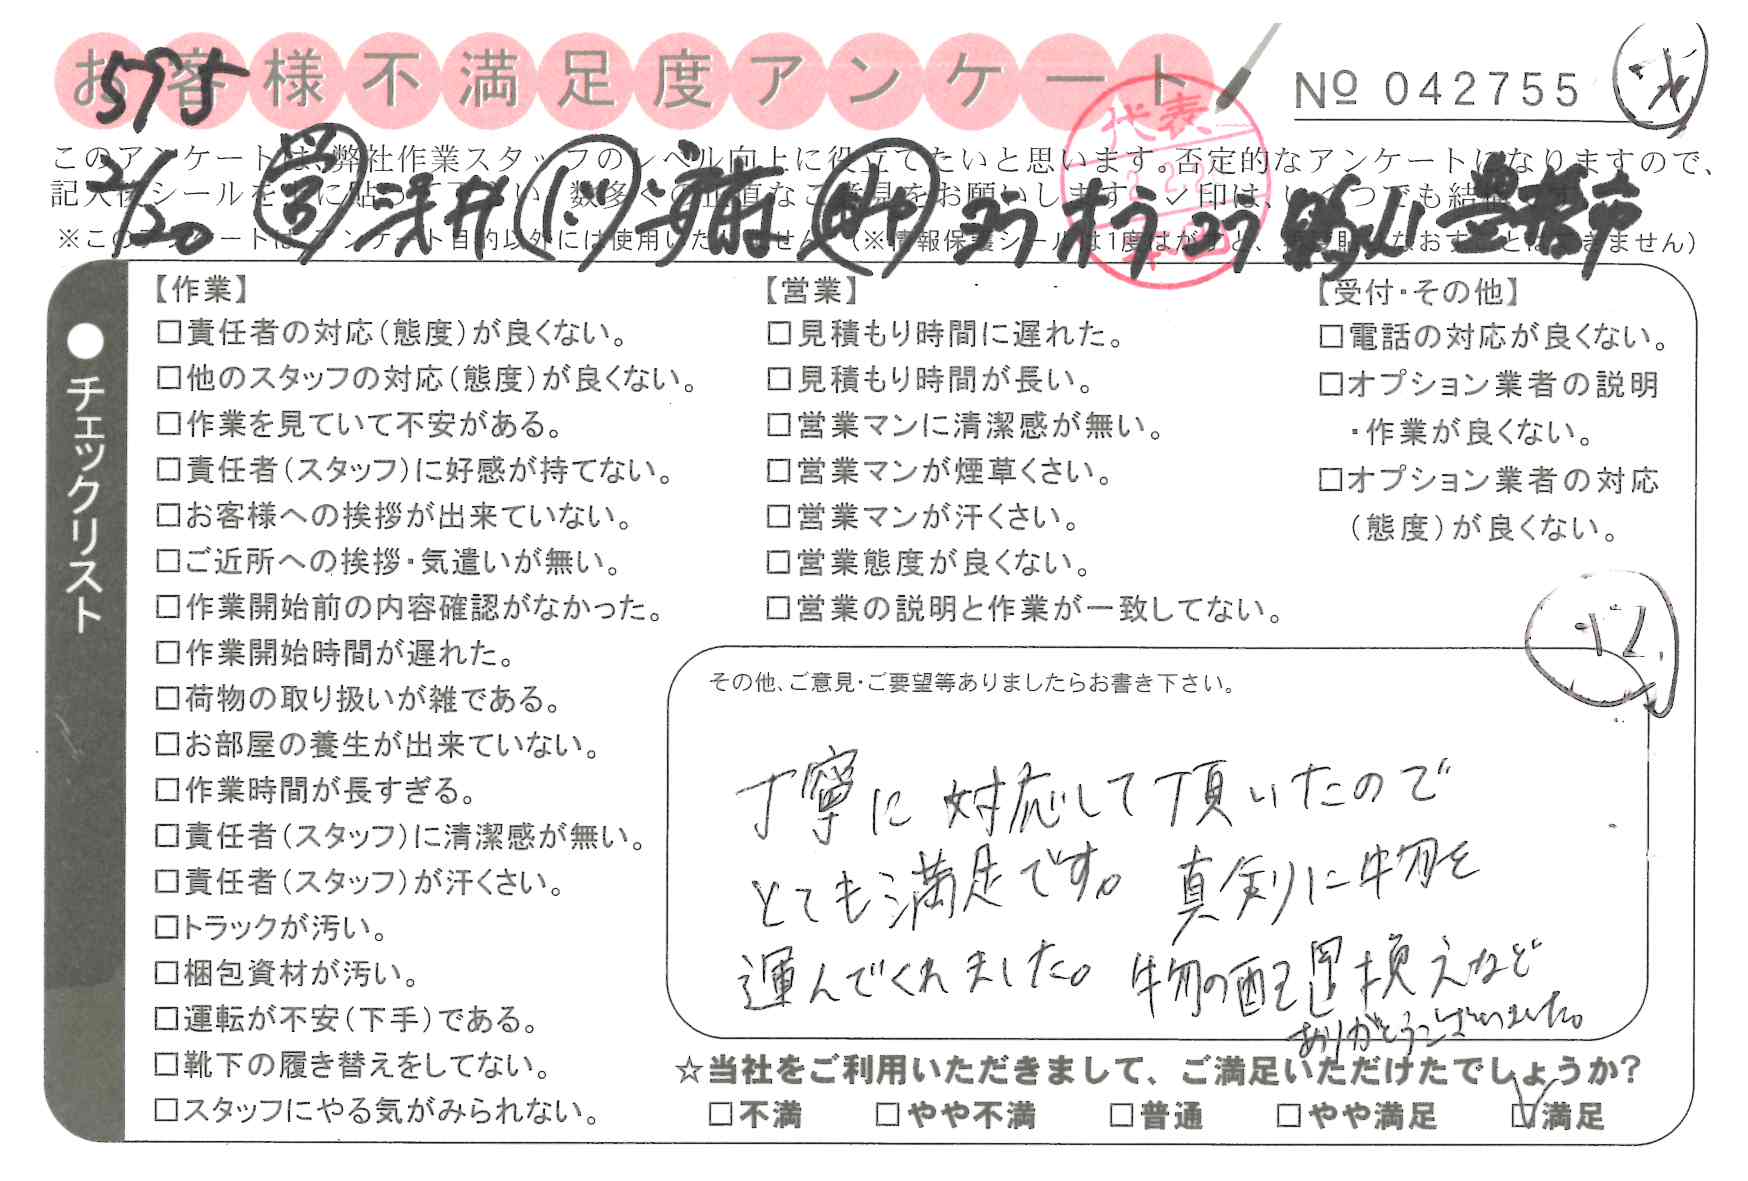 お客様不満足度アンケート
575
№ 042755
このアンケートは、弊社作業スタッフのレベル向上に役立てたいと思います。否定的なアンケートになりますので、
2/20 浅井
※このアンケートは、アンケート目的以外には使用いたしません。(※情報保護シールは1度はがすと、
代表
チェックリスト
【作業】
□責任者の対応(態度)が良くない。
□他のスタッフの対応(態度)が良くない。
□作業を見ていて不安がある。
□責任者(スタッフ)に好感が持てない。
□お客様への挨拶が出来ていない。
□ご近所への挨拶・気遣いが無い。
□作業開始前の内容確認がなかった。
□作業開始時間が遅れた。
□荷物の取り扱いが雑である。
□お部屋の養生が出来ていない。
□作業時間が長すぎる。
□責任者(スタッフ)に清潔感が無い。
□責任者(スタッフ)が汗くさい。
□トラックが汚い。
□梱包資材が汚い。
□運転が不安(下手)である。
□靴下の履き替えをしてない。
□スタッフにやる気がみられない。
【営業】
□見積もり時間に遅れた。
□見積もり時間が長い。
□営業マンに清潔感が無い。
□営業マンが煙草くさい。
□営業マンが汗くさい。
□営業態度が良くない。
□営業の説明と作業が一致してない。
【受付・その他】
□電話の対応が良くない。
□オプション業者の説明
・作業が良くない。
□オプション業者の対応
(態度)が良くない。
その他、ご意見・ご要望等ありましたらお書き下さい。
丁寧に対応して頂いたので
とても満足です。真剣に物を
運んでくれました。物の配置換えなど
ありがとうございました。
☆当社をご利用いただきまして、ご満足いただけたでしょうか?
□不満 □やや不満 □普通 □やや満足 ☑満足